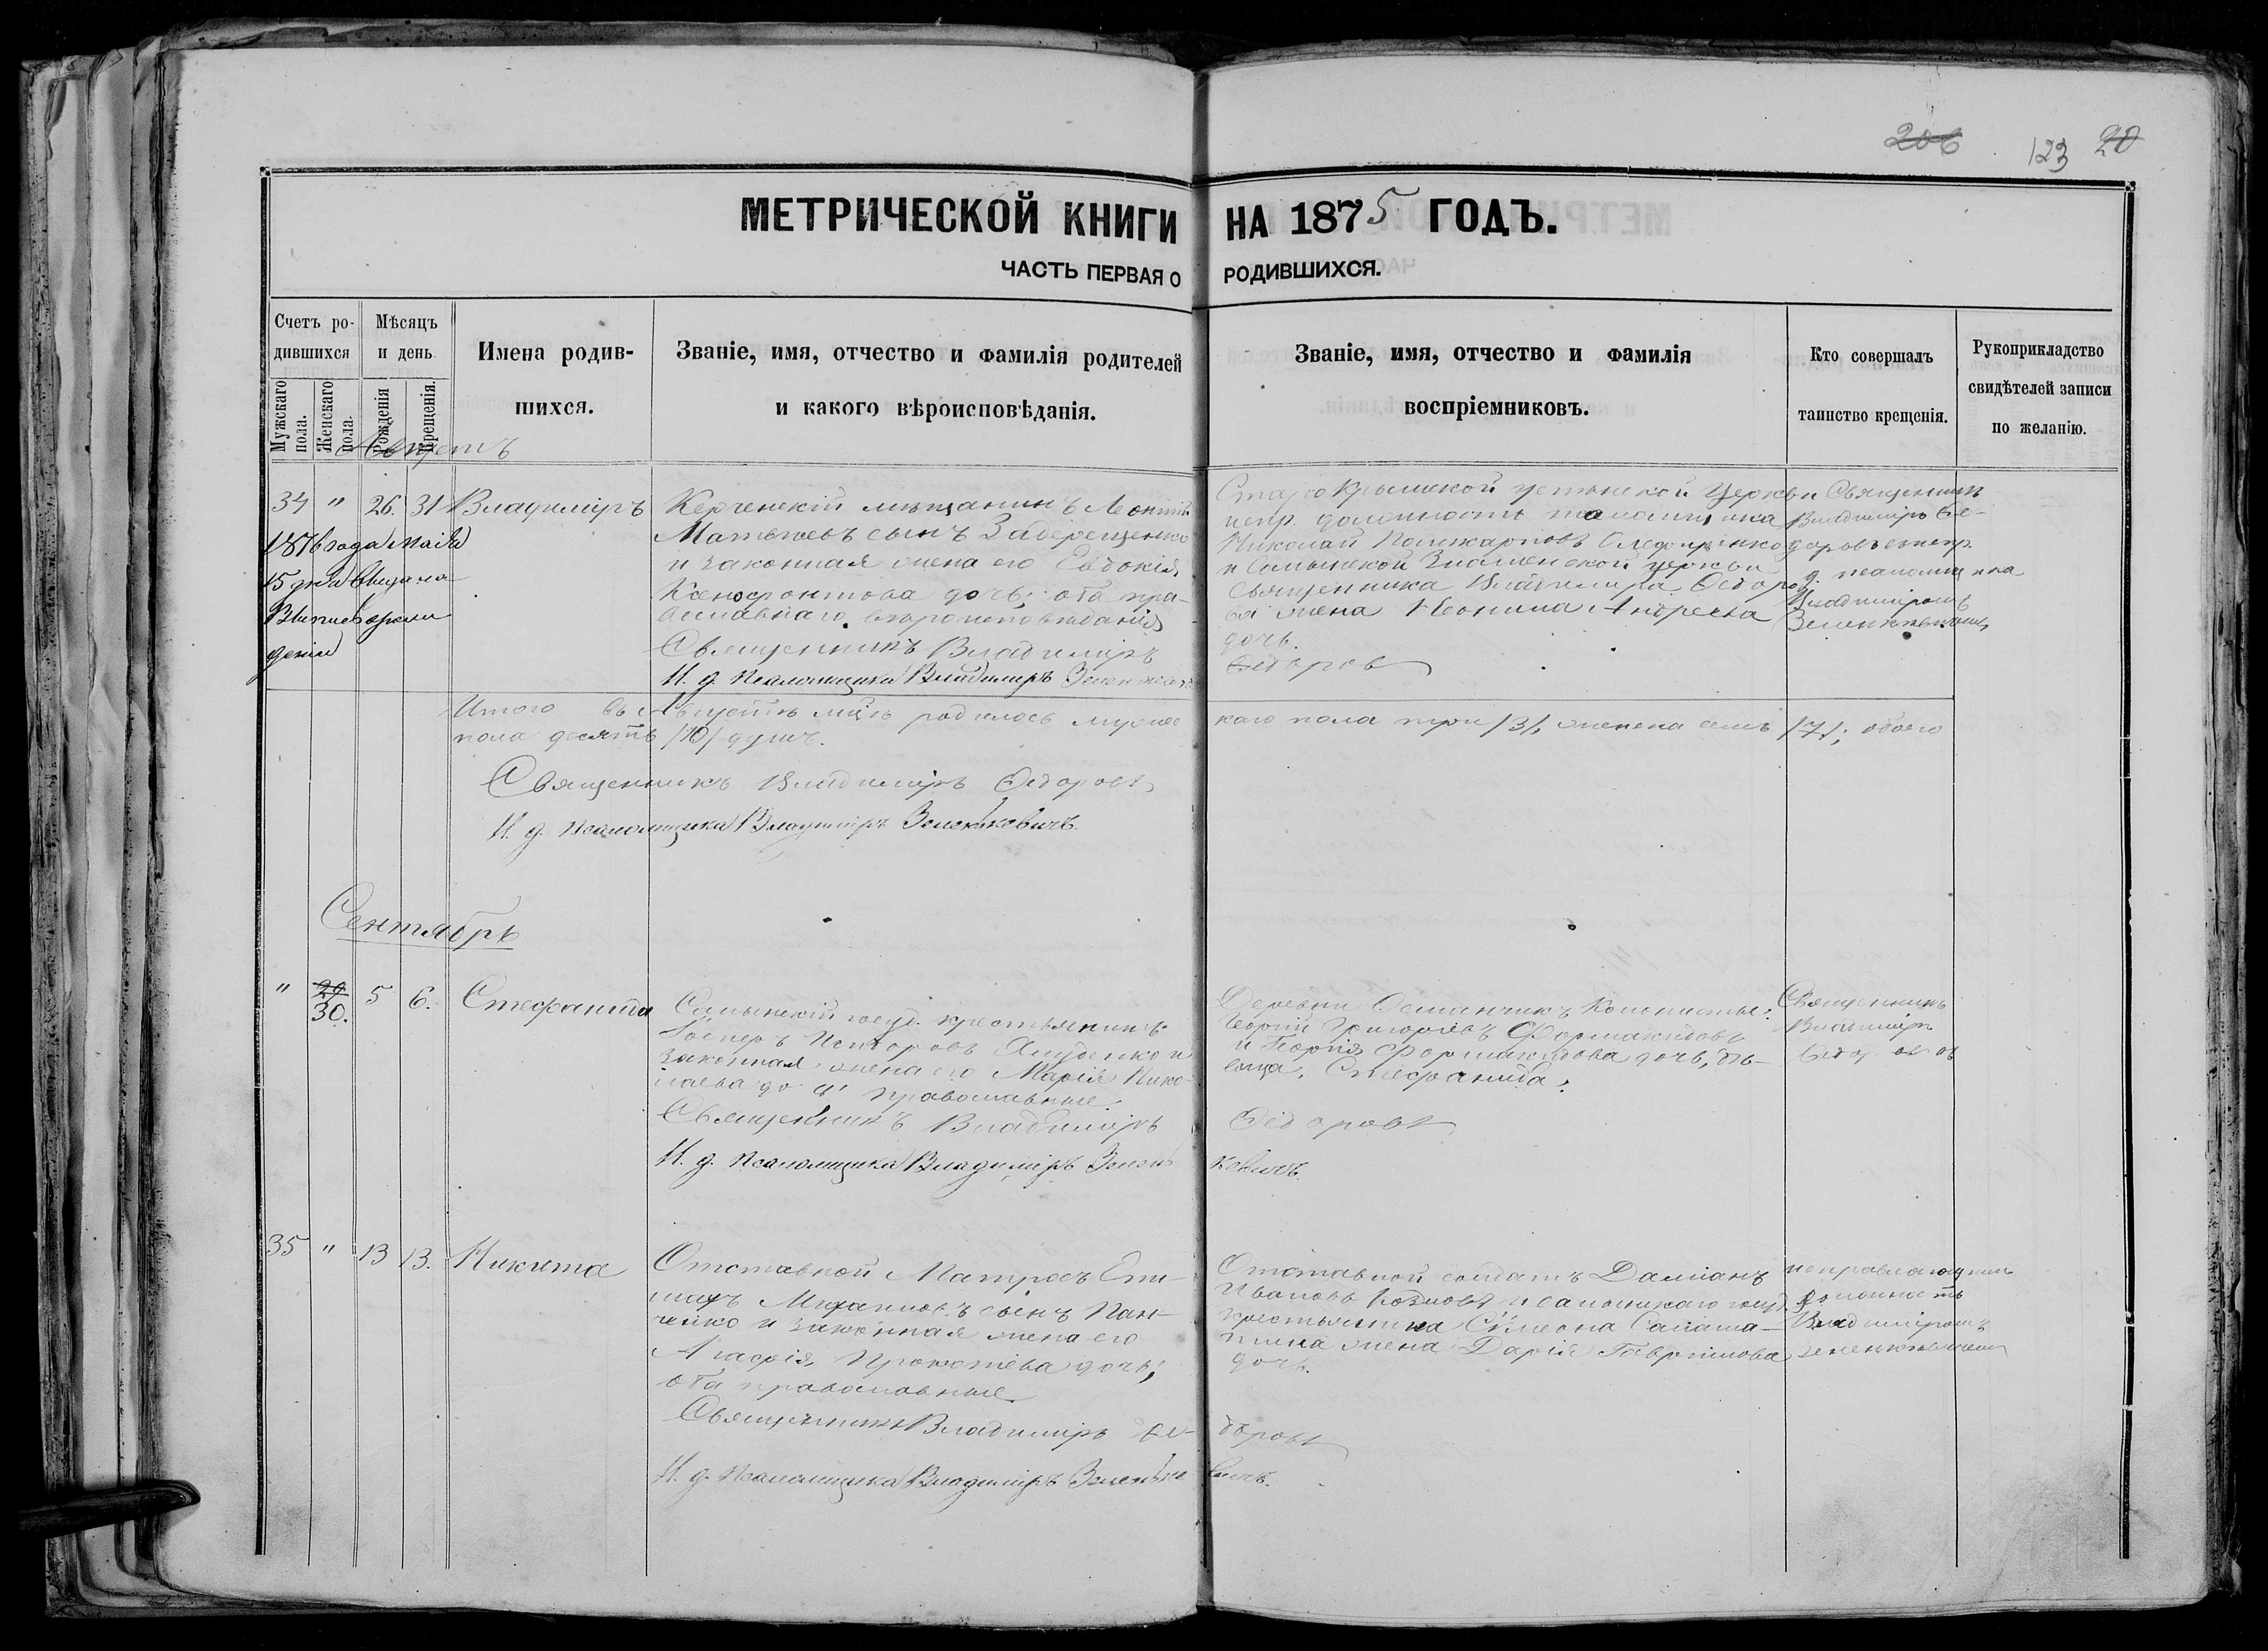 206 123 20
МЕТРИЧЕСКОЙ КНИГИ НА 1875 ГОДЪ.
ЧАСТЬ ПЕРВАЯ О РОДИВШИХСЯ.
Счетъ ро-
дившихся
Мужскаго
пола.
Женскаго
пола.
Мѣсяцъ
и день
Рожденія
Крещенія.
Имена родив-
шихся.
Званіе, имя, отчество и фамилія родителей
и какого вѣроисповѣданія.
Званіе, имя, отчество и фамилія
воспріемниковъ.
Кто совершалъ
таинство крещенія.
Рукоприкладство
свидѣтелей записи
по желанію.
Августъ
34 " 26. 31 Владиміръ
1876 года Маія
15 дня
Керченскій мѣщанинъ Леонтій
Матвѣевъ сынъ
и законная жена его Евдокія
Ксенофонтова дочь; оба пра-
вославнаго вѣроисповѣданія
Священникъ Владиміръ
И. д. Псаломщика Владиміръ
Старокрымской Успенской Церкви
испр. должность псаломщика
Николай Поликарповъ
и Салынской Знаменской церкви
Священника Владиміра Ѳедоро-
ва жена Неонила Андреева
дочь.
Ѳедоровъ
Священникъ
Владиміръ Ѳе-
доровъ съ испр.
д. псаломщика
Владиміромъ
Зеленкевичемъ
Итого въ Августѣ мцѣ родилось мужес
каго пола три /3/, женска семь /7/; обоего
пола десять /10/ душъ.
Священникъ Владиміръ Ѳедоровъ
И. д. Псаломщика Владиміръ Зеленкевичъ.
Сентябрь
" 29 30. 5 6. Стефанида
Салынскій госуд. крестьянинъ
законная жена его Марія Нико-
лаева дочь православные.
Священникъ Владиміръ
И. д. Псаломщика Владиміръ Зелен
Деревни Османчикъ Колонисты:
Георгій Григоріевъ Формакидовъ
и Георгія Формакидова дочь, дѣ-
вица, Стефанида.
Ѳедоровъ
кевичъ.
Священникъ
Владиміръ
Ѳедоровъ
35 " 13 13. Никита
Отставной Матросъ
сынъ Пан-
ченко и законная жена его
Агафія Прокофіева дочь;
оба православные.
Священникъ Владиміръ Ѳе-
И. д. Псаломщика Владиміръ Зеленке
Отставной солдатъ Даміанъ
Ивановъ Козловъ и салынскаго госуд.
крестьянина Симеона
жена Дарія Гавриилова
дочь.
доровъ
вичъ.
исправляющимъ
должность
Владиміромъ
Зеленкевичемъ